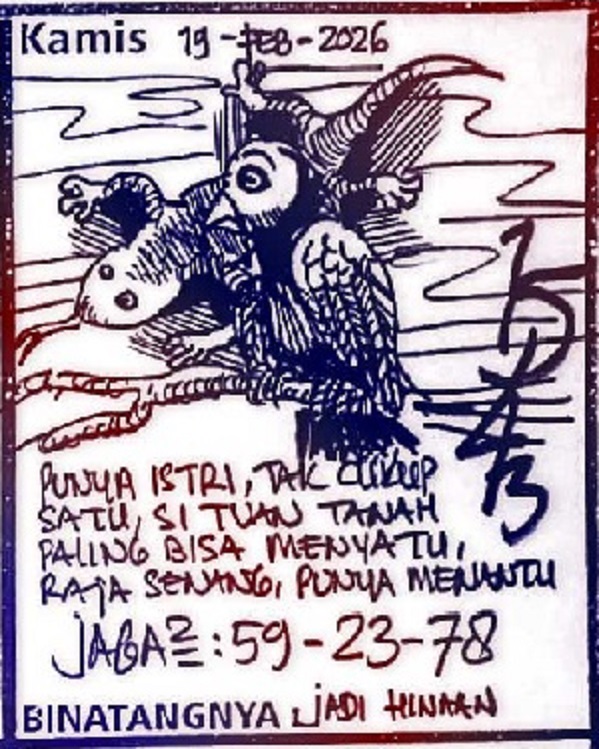 Kamis 19-FEB-2026
PUNYA ISTRI, TAK CUKUP
SATU, SI TUAN TANAH
PALING BISA MENYATU,
RAJA SENANG, PUNYA MENANTU
JAGA2=: 59-23-78
BINATANGNYA JADI HINAAN